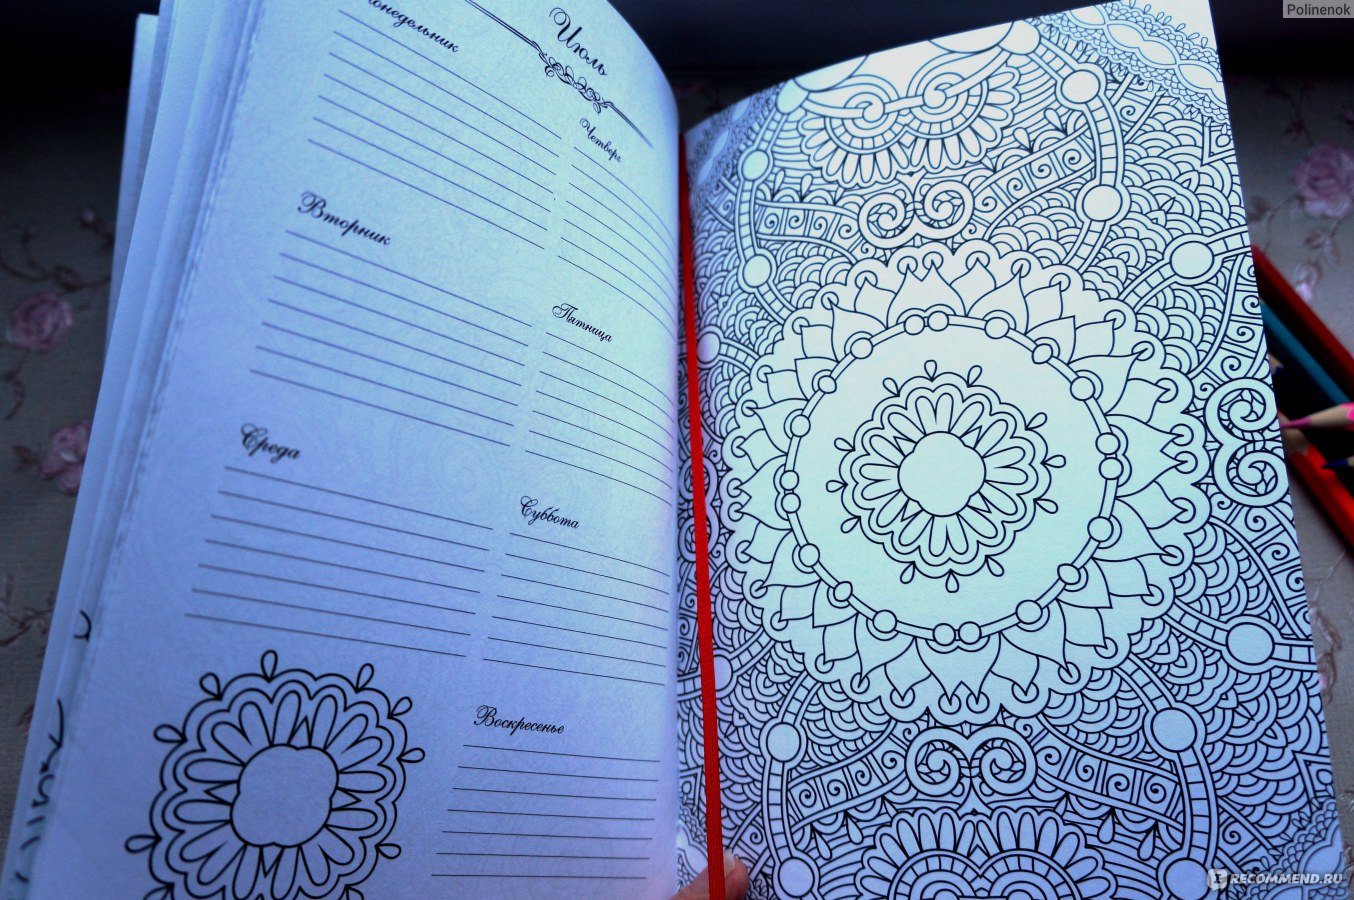 Polinenok
Июль
Понедельник
Вторник
Среда
Четверг
Пятница
Суббота
Воскресенье
RECOMMEND.RU